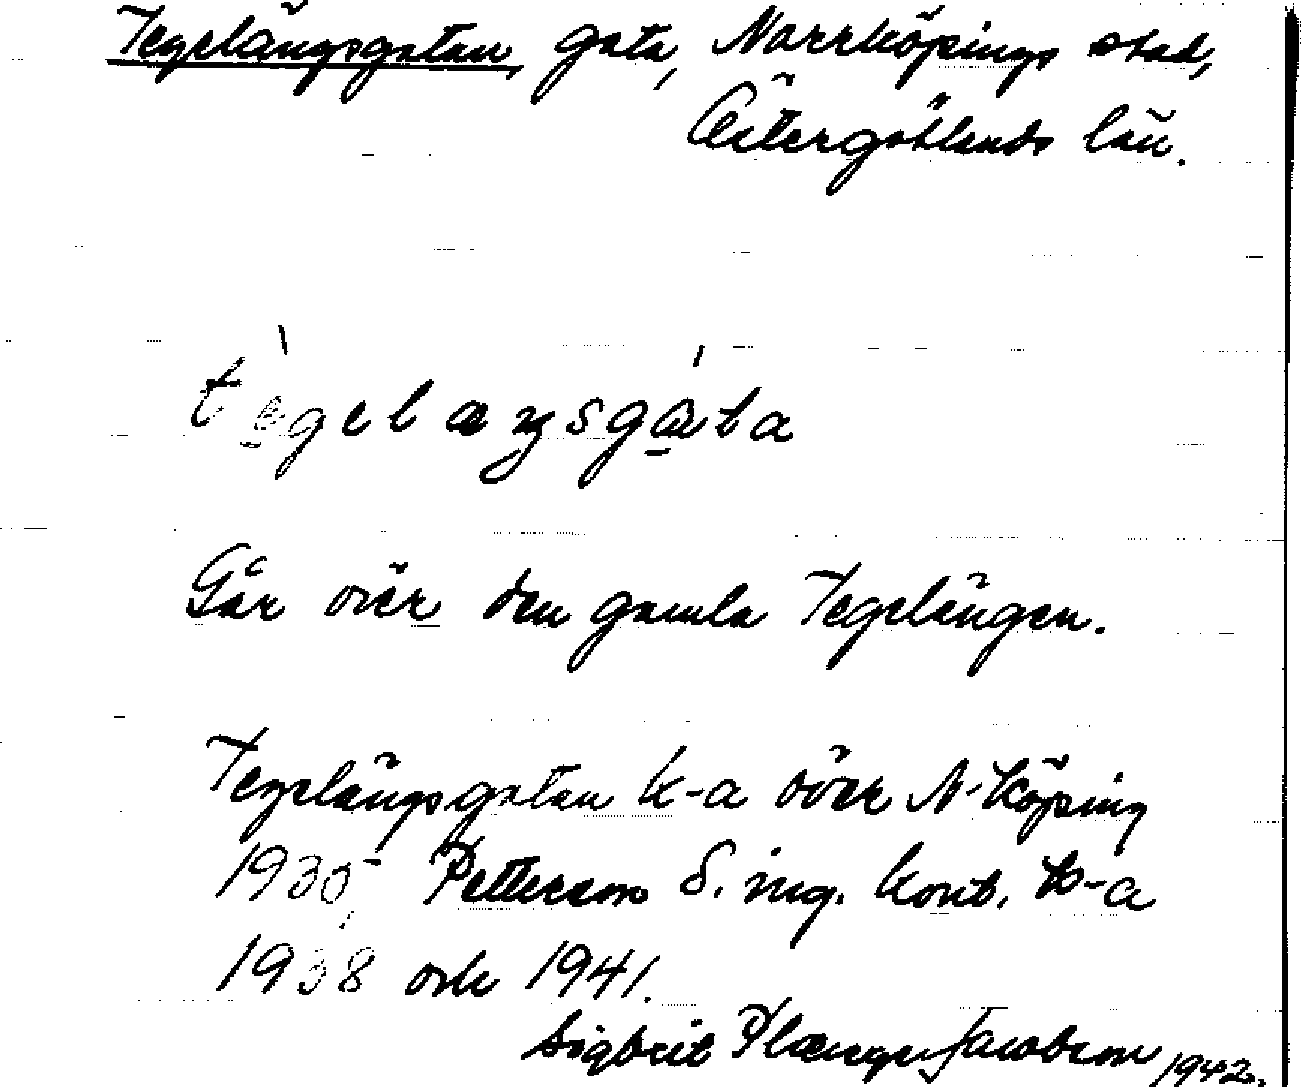 Tegelängsgatan, gata, Norrköpings stad,
Östergötlands län.
tègelæŋsgáta
Går över den gamla Tegelängen.
Tegelängsgatan k-a över N-köping
1935, Petterson S. ing. kont. k-a
1938 och 1941.
Sigbrit Plænge Jacobson 1942.